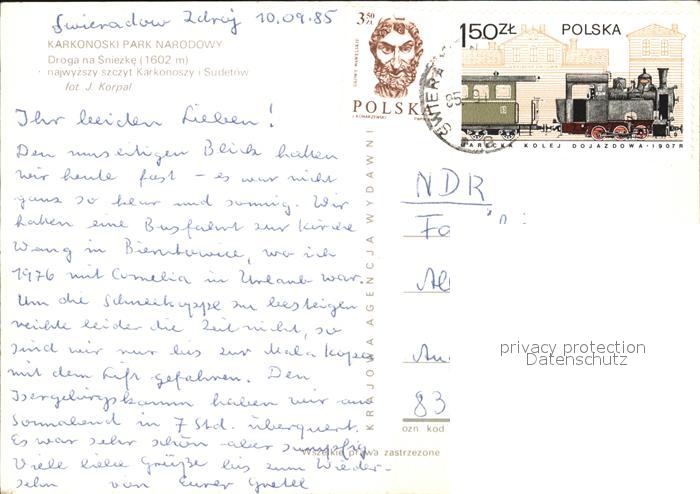 Świeradów Zdrój 10.09.85
KARKONOSKI PARK NARODOWY
Droga na Śnieżkę (1602 m)
najwyższy szczyt Karkonoszy i Sudetów
fot. J. Korpal
Ihr beiden Lieben!
Den umseitigen Blick hatten
wir heute fast – es war nicht
ganz so klar und sonnig. Wir
hatten eine Busfahrt zur Kirche
Wang in Bierutowice, wo ich
1976 mit Cornelia in Urlaub war.
Um die Schneekoppe zu besteigen
reichte leider die Zeit nicht, so
sind wir nur bis zur Mala Kopa
mit dem Lift gefahren. Den
Isergebirgskamm haben wir am
Sonnabend in 7 Std. überquert.
Es war sehr schön aber sumpfig
Viele liebe Grüße bis zum Wieder-
sehn von Eurer Gretel
KRAJOWA AGENCJA WYDAWNI
3,50 ZŁ
POLSKA
1,50 ZŁ POLSKA
MARECKA KOLEJ DOJAZDOWA • 1907R
ŚWIERA
85
NDR
Fa
Al
An
83
ozn. kod
Wszelkie prawa zastrzeżone
privacy protection
Datenschutz